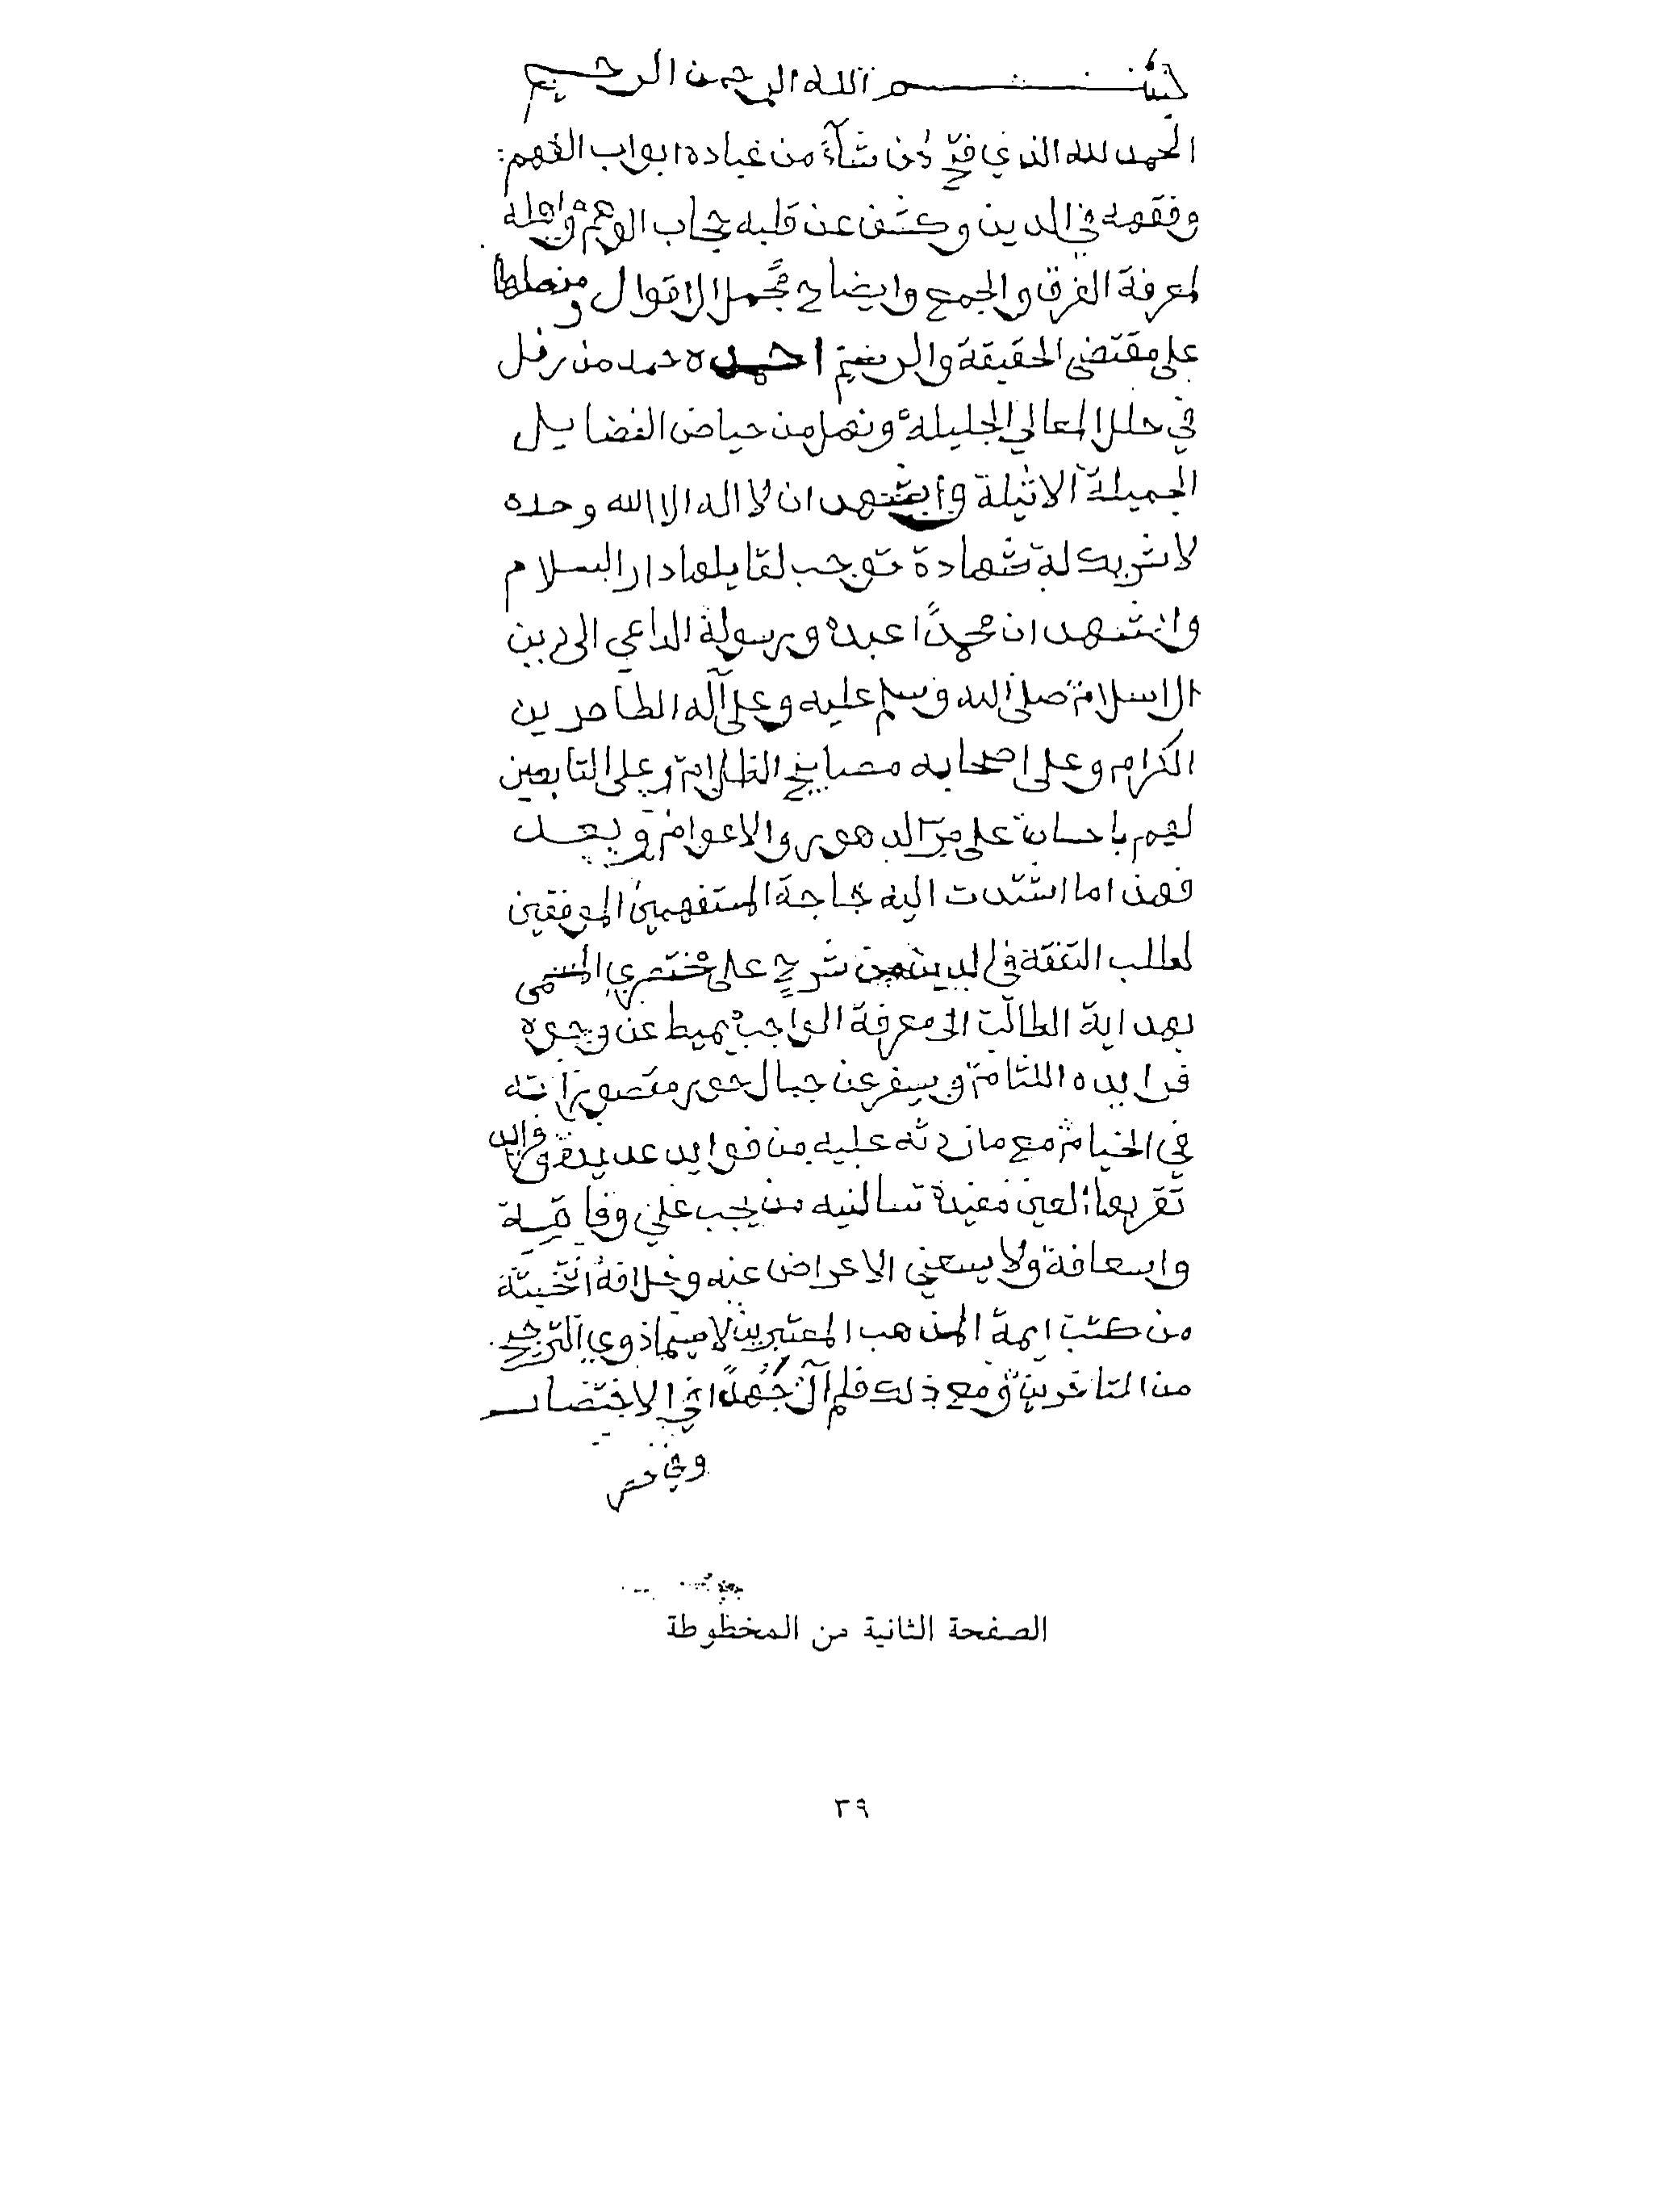 بسم الله الرحمن الرحيم
الحمد لله الذي فتح لمن شآء من عباده ابواب الفهم:
وفقهه في الدين وكشف عن قلبه حجاب الوهم واهله
لمعرفة الفرق والجمع وايضاح مجمل الاقوال ومفصلها
على مقتضى الحقيقة والرسم احمده حمد من رفل
في حلل المعالي الجليلة ونهل من حياض الفضايل
الجميلة الاثيلة واشهد ان لا اله الا الله وحده
لا شريك له شهادة توجب لقايلها دار السلام
واشهد ان محمدًا عبده ورسوله الداعي الى دين
الاسلام صلى الله وسلم عليه وعلى آله الطاهرين
الكرام وعلى اصحابه مصابيح الظلام وعلى التابعين
لهم باحسان على مر الدهور والاعوام وبعد
فهذا ما اشتدت اليه حاجة المستفهمين الموفقين
لطلب التفقه في الدين من شرح على مختصري المسمى
بهداية الطالب الى معرفة الواجب يميط عن وجوه
فرايده اللثام ويسفر عن جمال حور مقصوراته
في الخيام مع ما زدته عليه من فوايد عديدة وفرايد
تقر بها العين مفيدة سالنيه من يجب علي وفاقه
واسعافه ولا يسعني الاعراض عنه وخلافه انتخبته
من كتب ايمة المذهب المعتبرين لا سيما ذوي الترجيح
من المتاخرين ومع ذلك فلم آل جُهدًا في الاختصار
وفي
الصفحة الثانية من المخطوطة
٣٩